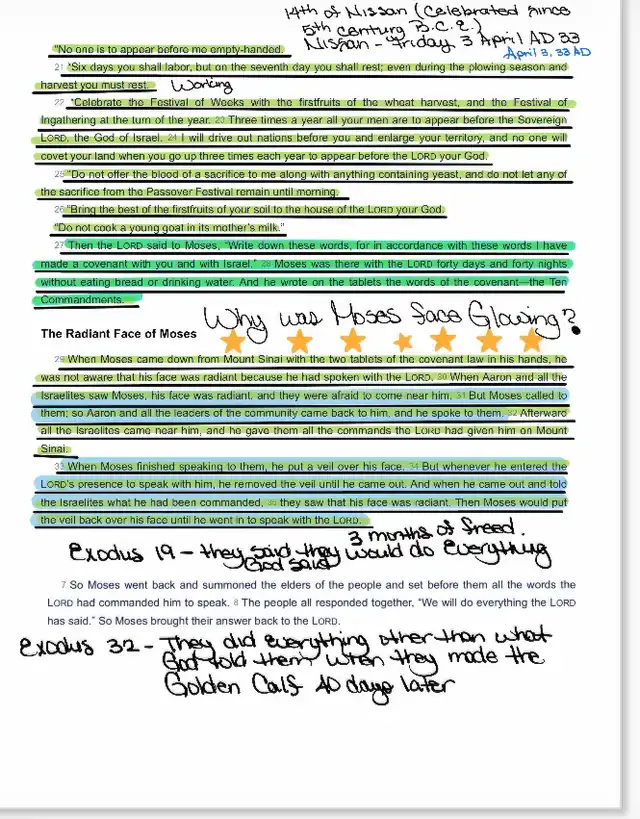 14th of Nissan (Celebrated since
5th century B.C.E.)
Nissan - Friday 3 April AD 33
April 3, 33 AD
"No one is to appear before me empty-handed.
21 "Six days you shall labor, but on the seventh day you shall rest; even during the plowing season and
harvest you must rest. Working
22 "Celebrate the Festival of Weeks with the firstfruits of the wheat harvest, and the Festival of
Ingathering at the turn of the year. 23 Three times a year all your men are to appear before the Sovereign
LORD, the God of Israel. 24 I will drive out nations before you and enlarge your territory, and no one will
covet your land when you go up three times each year to appear before the LORD your God.
25 "Do not offer the blood of a sacrifice to me along with anything containing yeast, and do not let any of
the sacrifice from the Passover Festival remain until morning.
26 "Bring the best of the firstfruits of your soil to the house of the LORD your God.
"Do not cook a young goat in its mother's milk."
27 Then the LORD said to Moses, "Write down these words, for in accordance with these words I have
made a covenant with you and with Israel." 28 Moses was there with the LORD forty days and forty nights
without eating bread or drinking water. And he wrote on the tablets the words of the covenant—the Ten
Commandments.
Why was Moses face Glowing?
The Radiant Face of Moses
29 When Moses came down from Mount Sinai with the two tablets of the covenant law in his hands, he
was not aware that his face was radiant because he had spoken with the LORD. 30 When Aaron and all the
Israelites saw Moses, his face was radiant, and they were afraid to come near him. 31 But Moses called to
them; so Aaron and all the leaders of the community came back to him, and he spoke to them. 32 Afterward
all the Israelites came near him, and he gave them all the commands the LORD had given him on Mount
Sinai.
33 When Moses finished speaking to them, he put a veil over his face. 34 But whenever he entered the
LORD's presence to speak with him, he removed the veil until he came out. And when he came out and told
the Israelites what he had been commanded, 35 they saw that his face was radiant. Then Moses would put
the veil back over his face until he went in to speak with the LORD.
3 months of freed.
Exodus 19 - they said they would do everything
God said
7 So Moses went back and summoned the elders of the people and set before them all the words the
LORD had commanded him to speak. 8 The people all responded together, "We will do everything the LORD
has said." So Moses brought their answer back to the LORD.
Exodus 32 - They did everything other than what
God told them when they made the
Golden Calf 40 days later